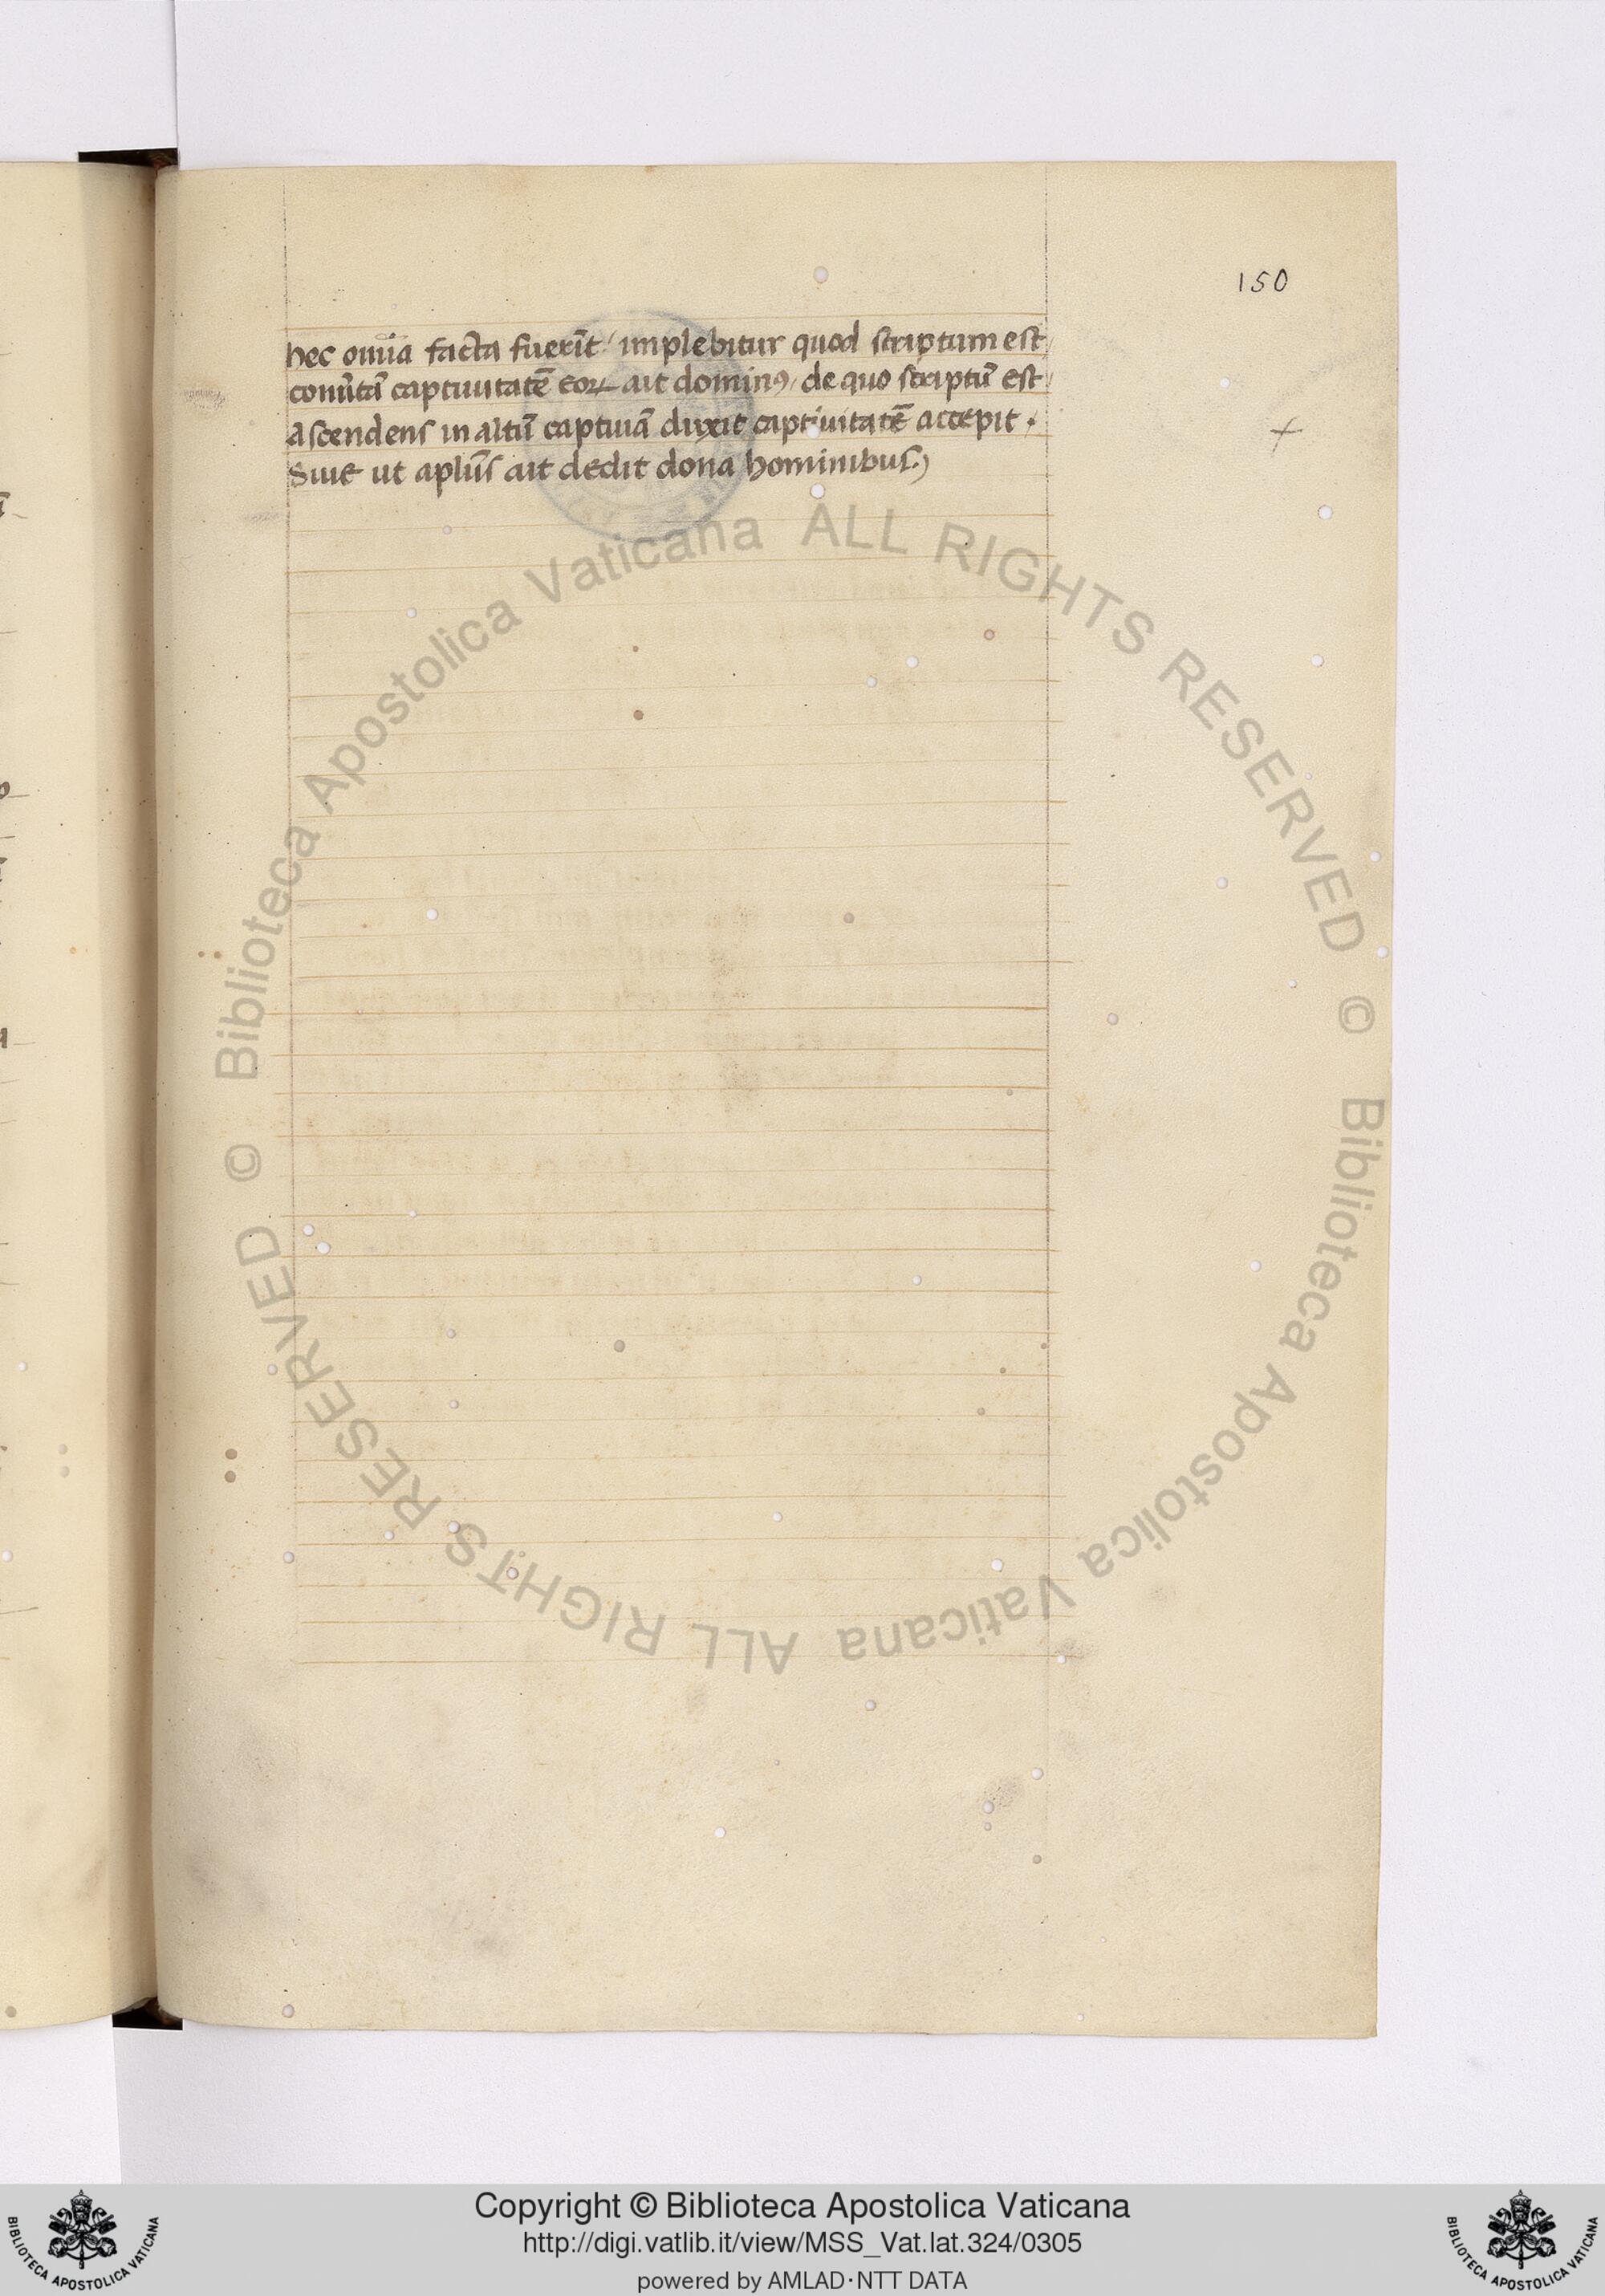 150
hec om̄ia facta fuerīt / implebitur quod scriptum est /
conūtā captiuitatē eoꝝ ait dominꝰ / de quo scriptū est /
Ascendens in altū captiuā duxit captiuitatē accepit .
Siue ut aplūs ait dedit dona hominibus.)
+
© Biblioteca Apostolica Vaticana ALL RIGHTS RESERVED
© Biblioteca Apostolica Vaticana ALL RIGHTS RESERVED
Copyright © Biblioteca Apostolica Vaticana
http://digi.vatlib.it/view/MSS_Vat.lat.324/0305
powered by AMLAD·NTT DATA
BIBLIOTECA APOSTOLICA VATICANA
BIBLIOTECA APOSTOLICA VATICANA